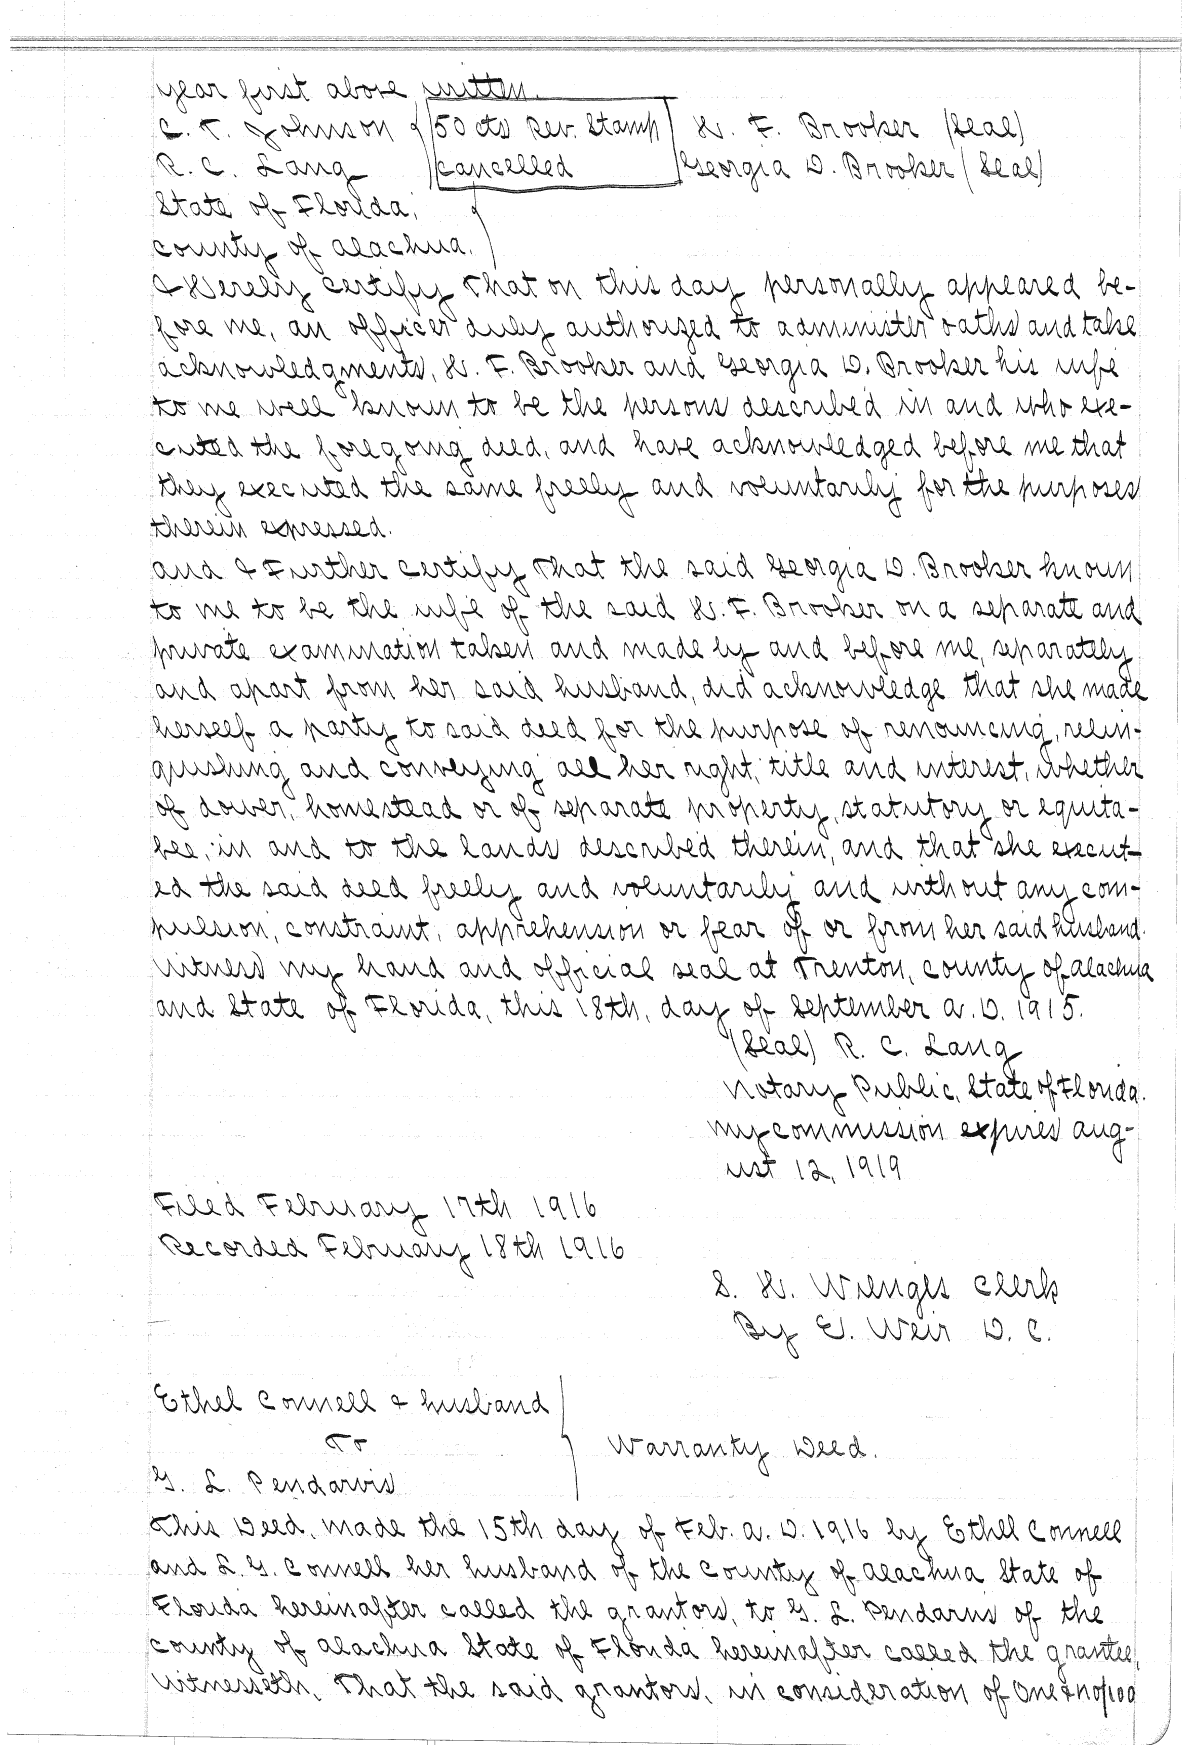 year first above written.
C. T. Johnson { 50 cts Rev. Stamp H. F. Brooker (Seal)
R. C. Lang cancelled Georgia D. Brooker (Seal)
State of Florida,
County of Alachua. }
I Hereby certify That on this day personally appeared be-
fore me, an officer duly authorized to administer oaths and take
acknowledgments, H. F. Brooker and Georgia D. Brooker his wife
to me well known to be the persons described in and who exe-
cuted the foregoing deed, and have acknowledged before me that
they executed the same freely and voluntarily for the purposes
therein expressed.
And I Further certify That the said Georgia D. Brooker known
to me to be the wife of the said H. F. Brooker on a separate and
private examination taken and made by and before me, separately
and apart from her said husband, did acknowledge that she made
herself a party to said deed for the purpose of renouncing, relin-
quishing and conveying all her right, title and interest, whether
of dower, homestead or of separate property, statutory or equita-
ble, in and to the lands described therein, and that she execut-
ed the said deed freely and voluntarily and without any com-
pulsion, constraint, apprehension or fear of or from her said husband.
Witness my hand and official seal at Trenton, County of Alachua
and State of Florida, this 18th, day of September A. D. 1915.
(Seal) R. C. Lang
Notary Public, State of Florida.
My commission expires Aug-
ust 12, 1919
Filed February 17th 1916
Recorded February 18th 1916
S. H. Wienges Clerk
By E. Weir D. C.
Ethel Connell & husband
To } Warranty Deed.
G. L. Pendarvis
This Deed, made the 15th day of Feb. A. D. 1916 by Ethel Connell
and L. G. Connell her husband of the County of Alachua State of
Florida hereinafter called the grantors, to G. L. Pendarvis of the
County of Alachua State of Florida hereinafter called the grantee,
Witnesseth, That the said grantors, in consideration of One & no/100